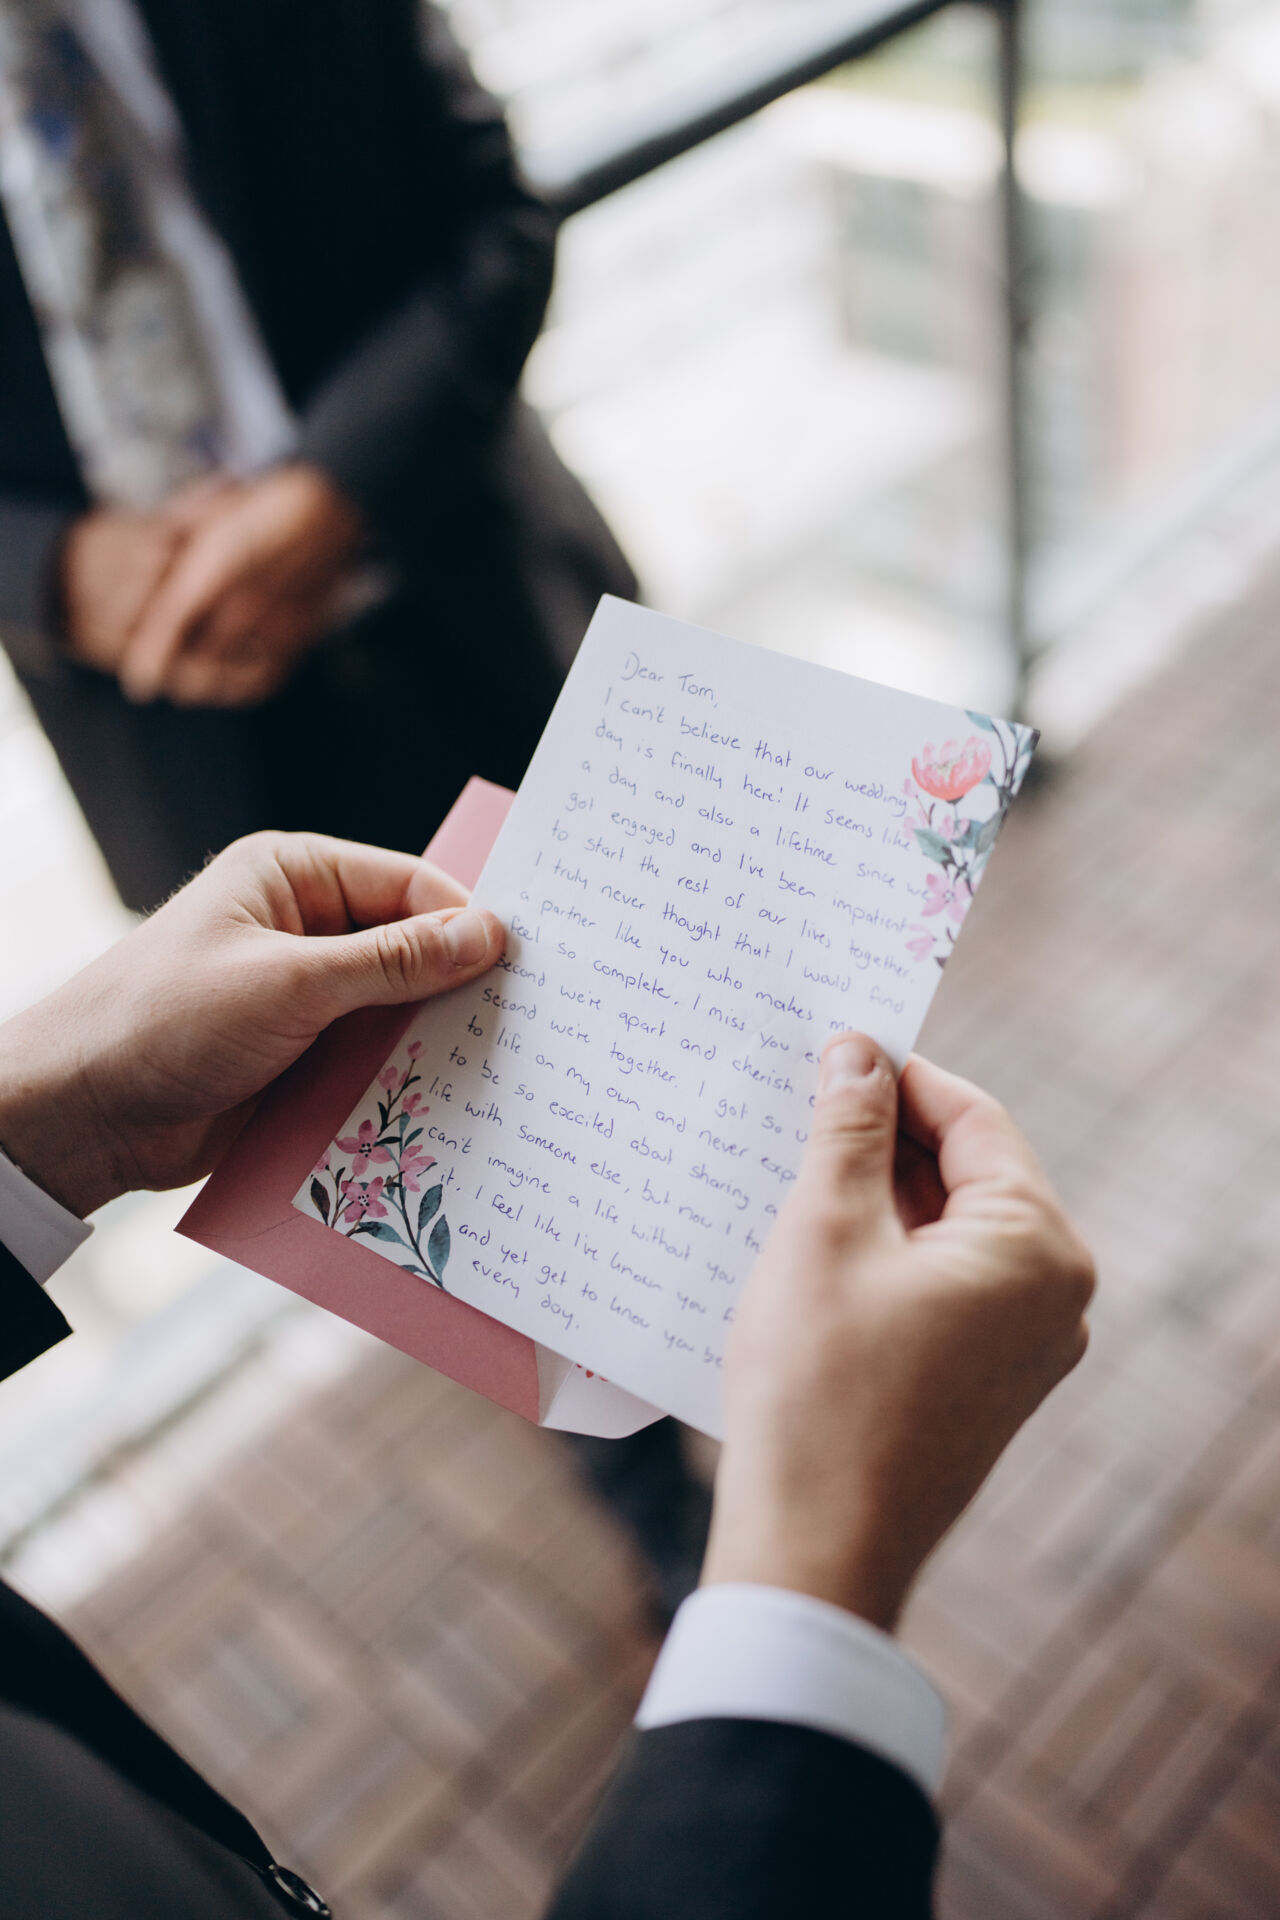 Dear Tom,
I can't believe that our wedding
day is finally here! It seems like
a day and also a lifetime since we
got engaged and I've been impatient
to start the rest of our lives together.
I truly never thought that I would find
a partner like you who makes me
feel so complete. I miss you
second we're apart and cherish
second we're together. I got so
to life on my own and never
to be so exccited about sharing a
life with someone else, but now I
can't imagine a life without you
it. I feel like I've known you
and yet get to know you
every day.